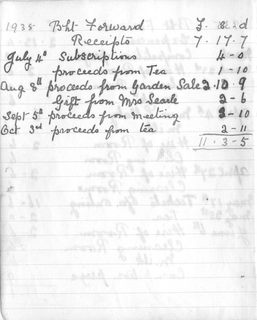 1938 Bht Forward £ s d
Receipts 7-17-7
July 4th Subscriptions 4-0
proceeds from Tea 1-10
Aug 8th proceeds from Garden Sale 2-10-9
Gift from Mrs Searle 2-6
Sept 5th proceeds from meeting 3-10
Oct 3rd proceeds from tea 2-11
11-3-5